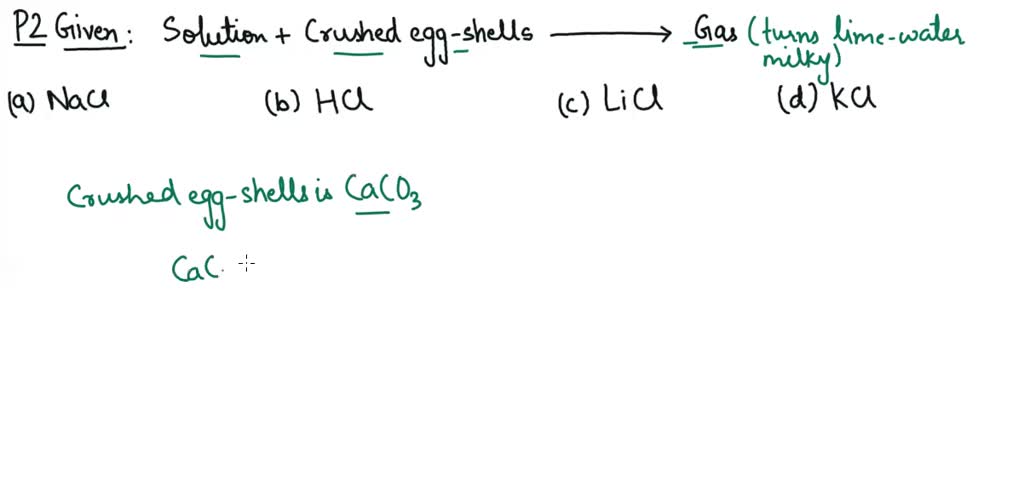 P2 Given: Solution + Crushed egg-shells ⟶ Gas (turns lime-water
milky)
(a) NaCl (b) HCl (c) LiCl (d) KCl
Crushed egg-shells is CaCO₃
CaC